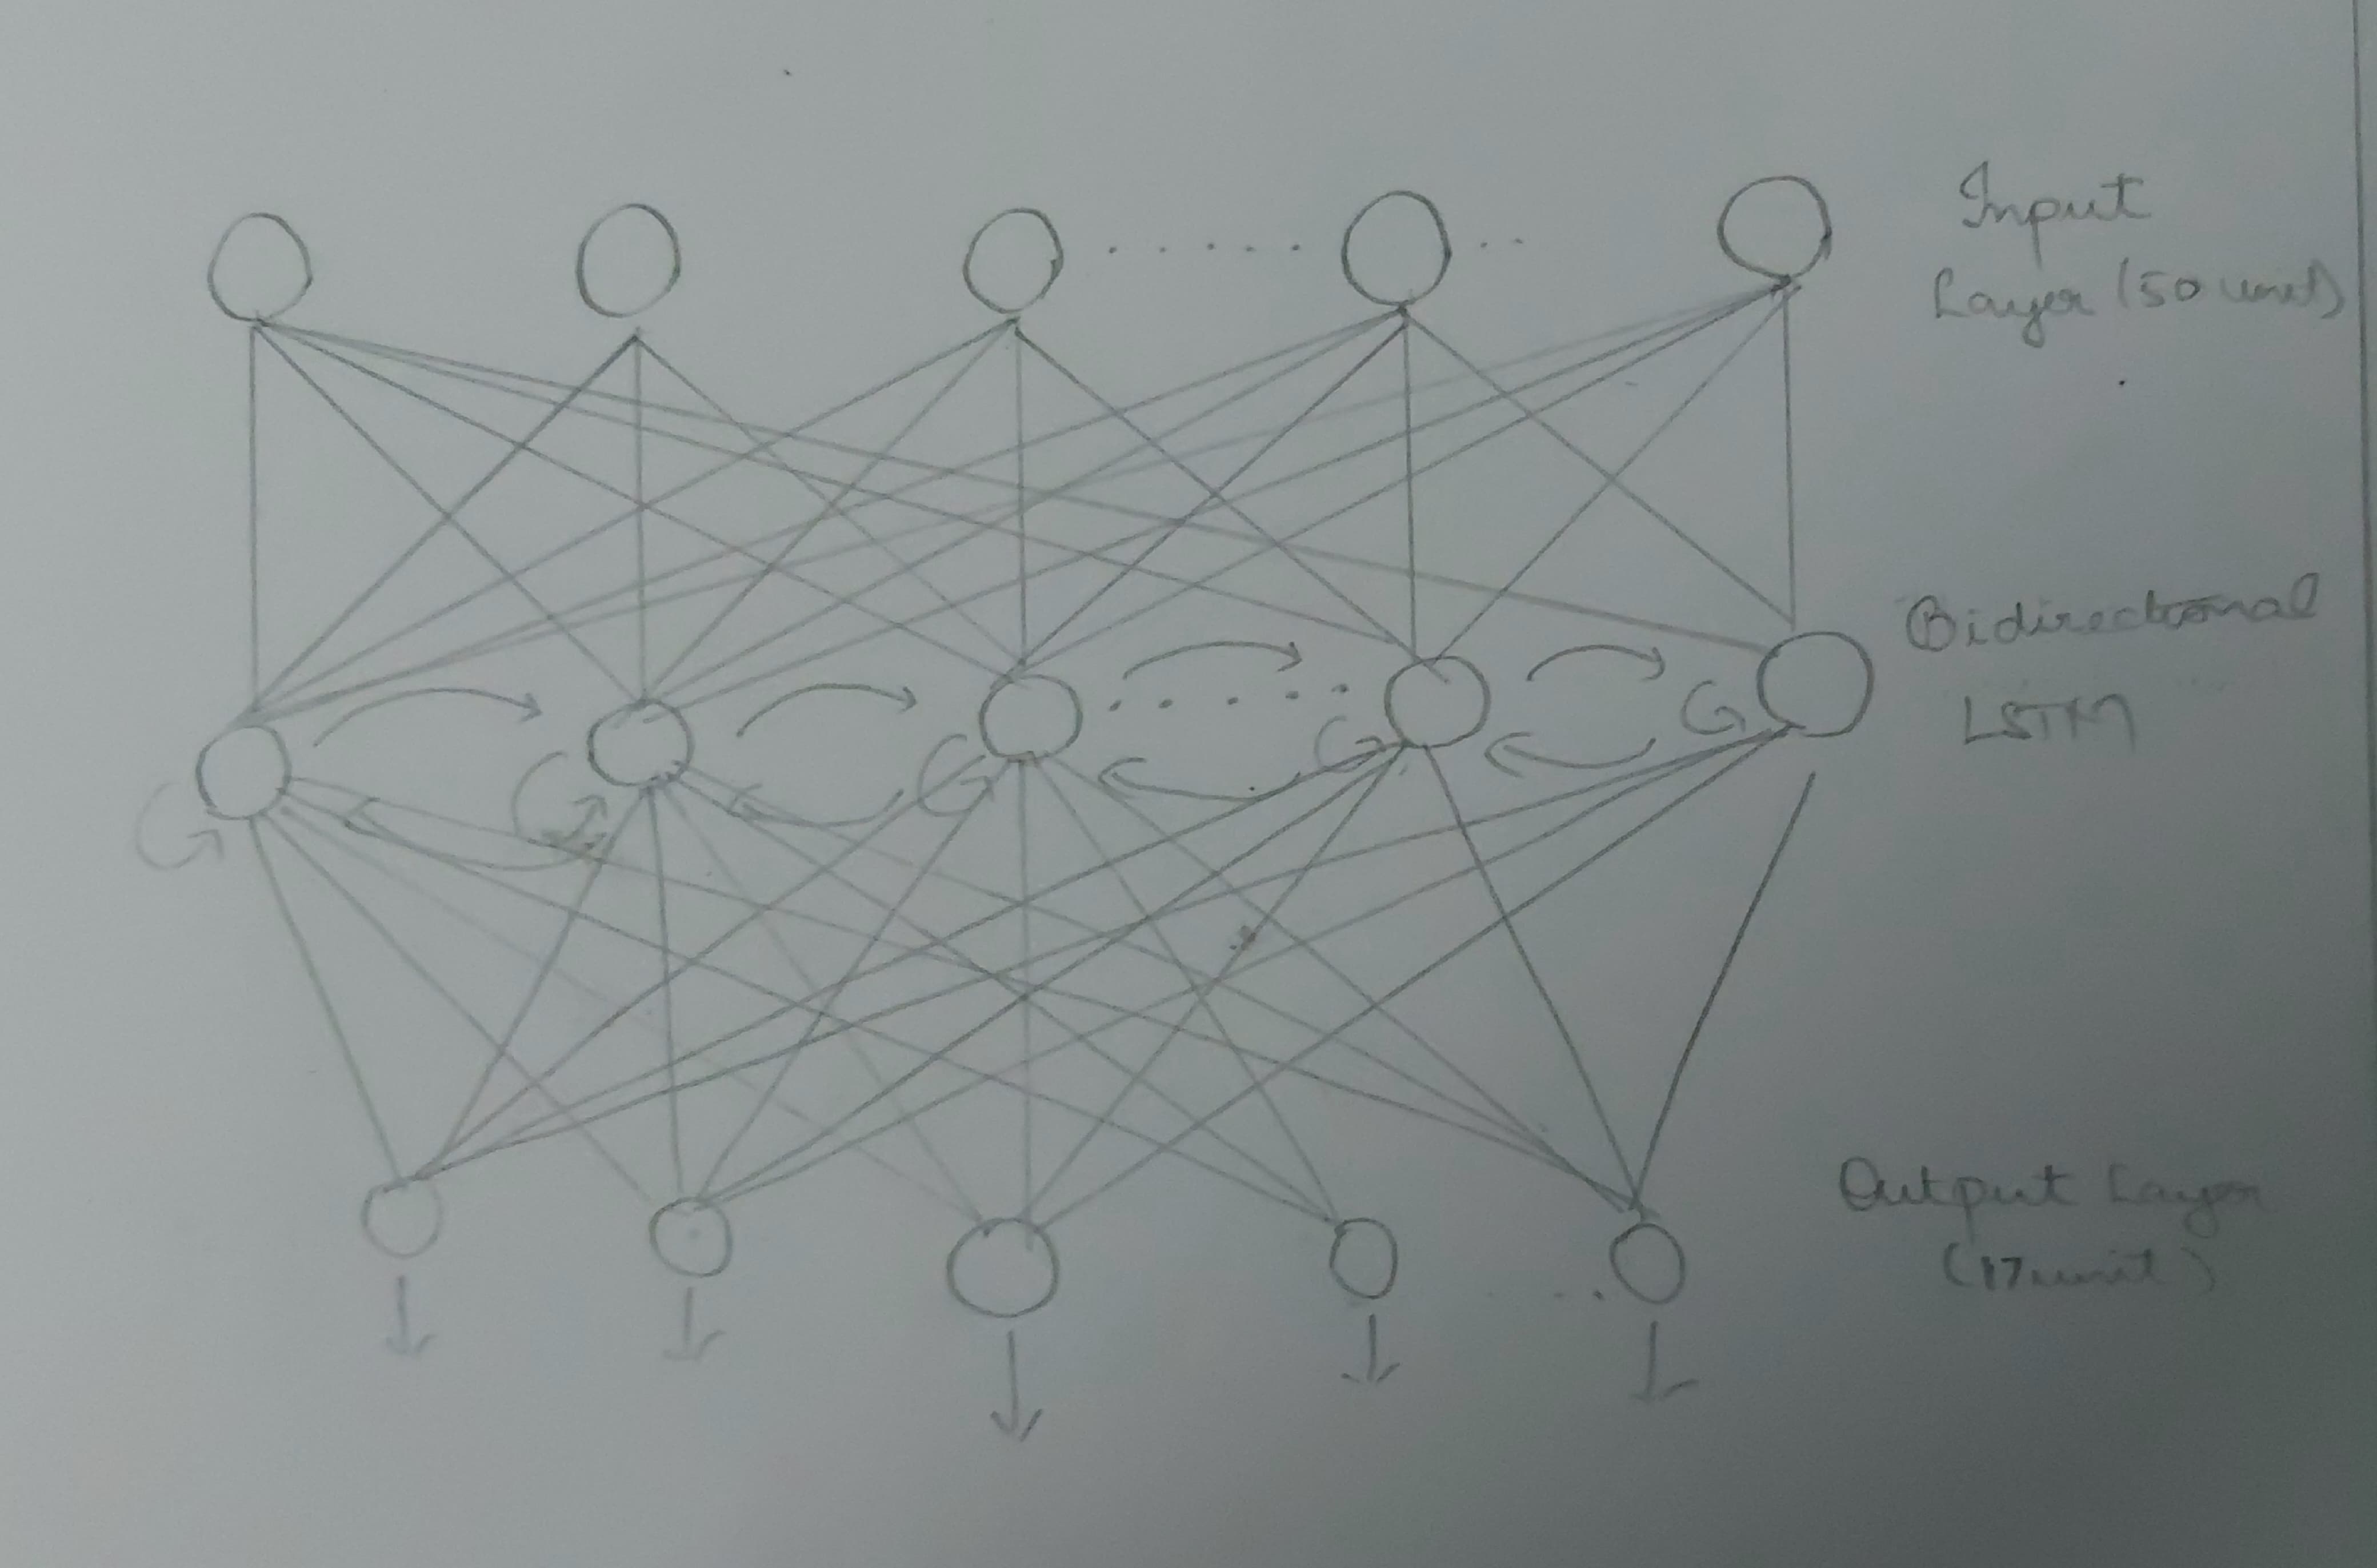 Input
Layer (50 unit)
Bidirectional
LSTM
Output Layer
(17 unit)